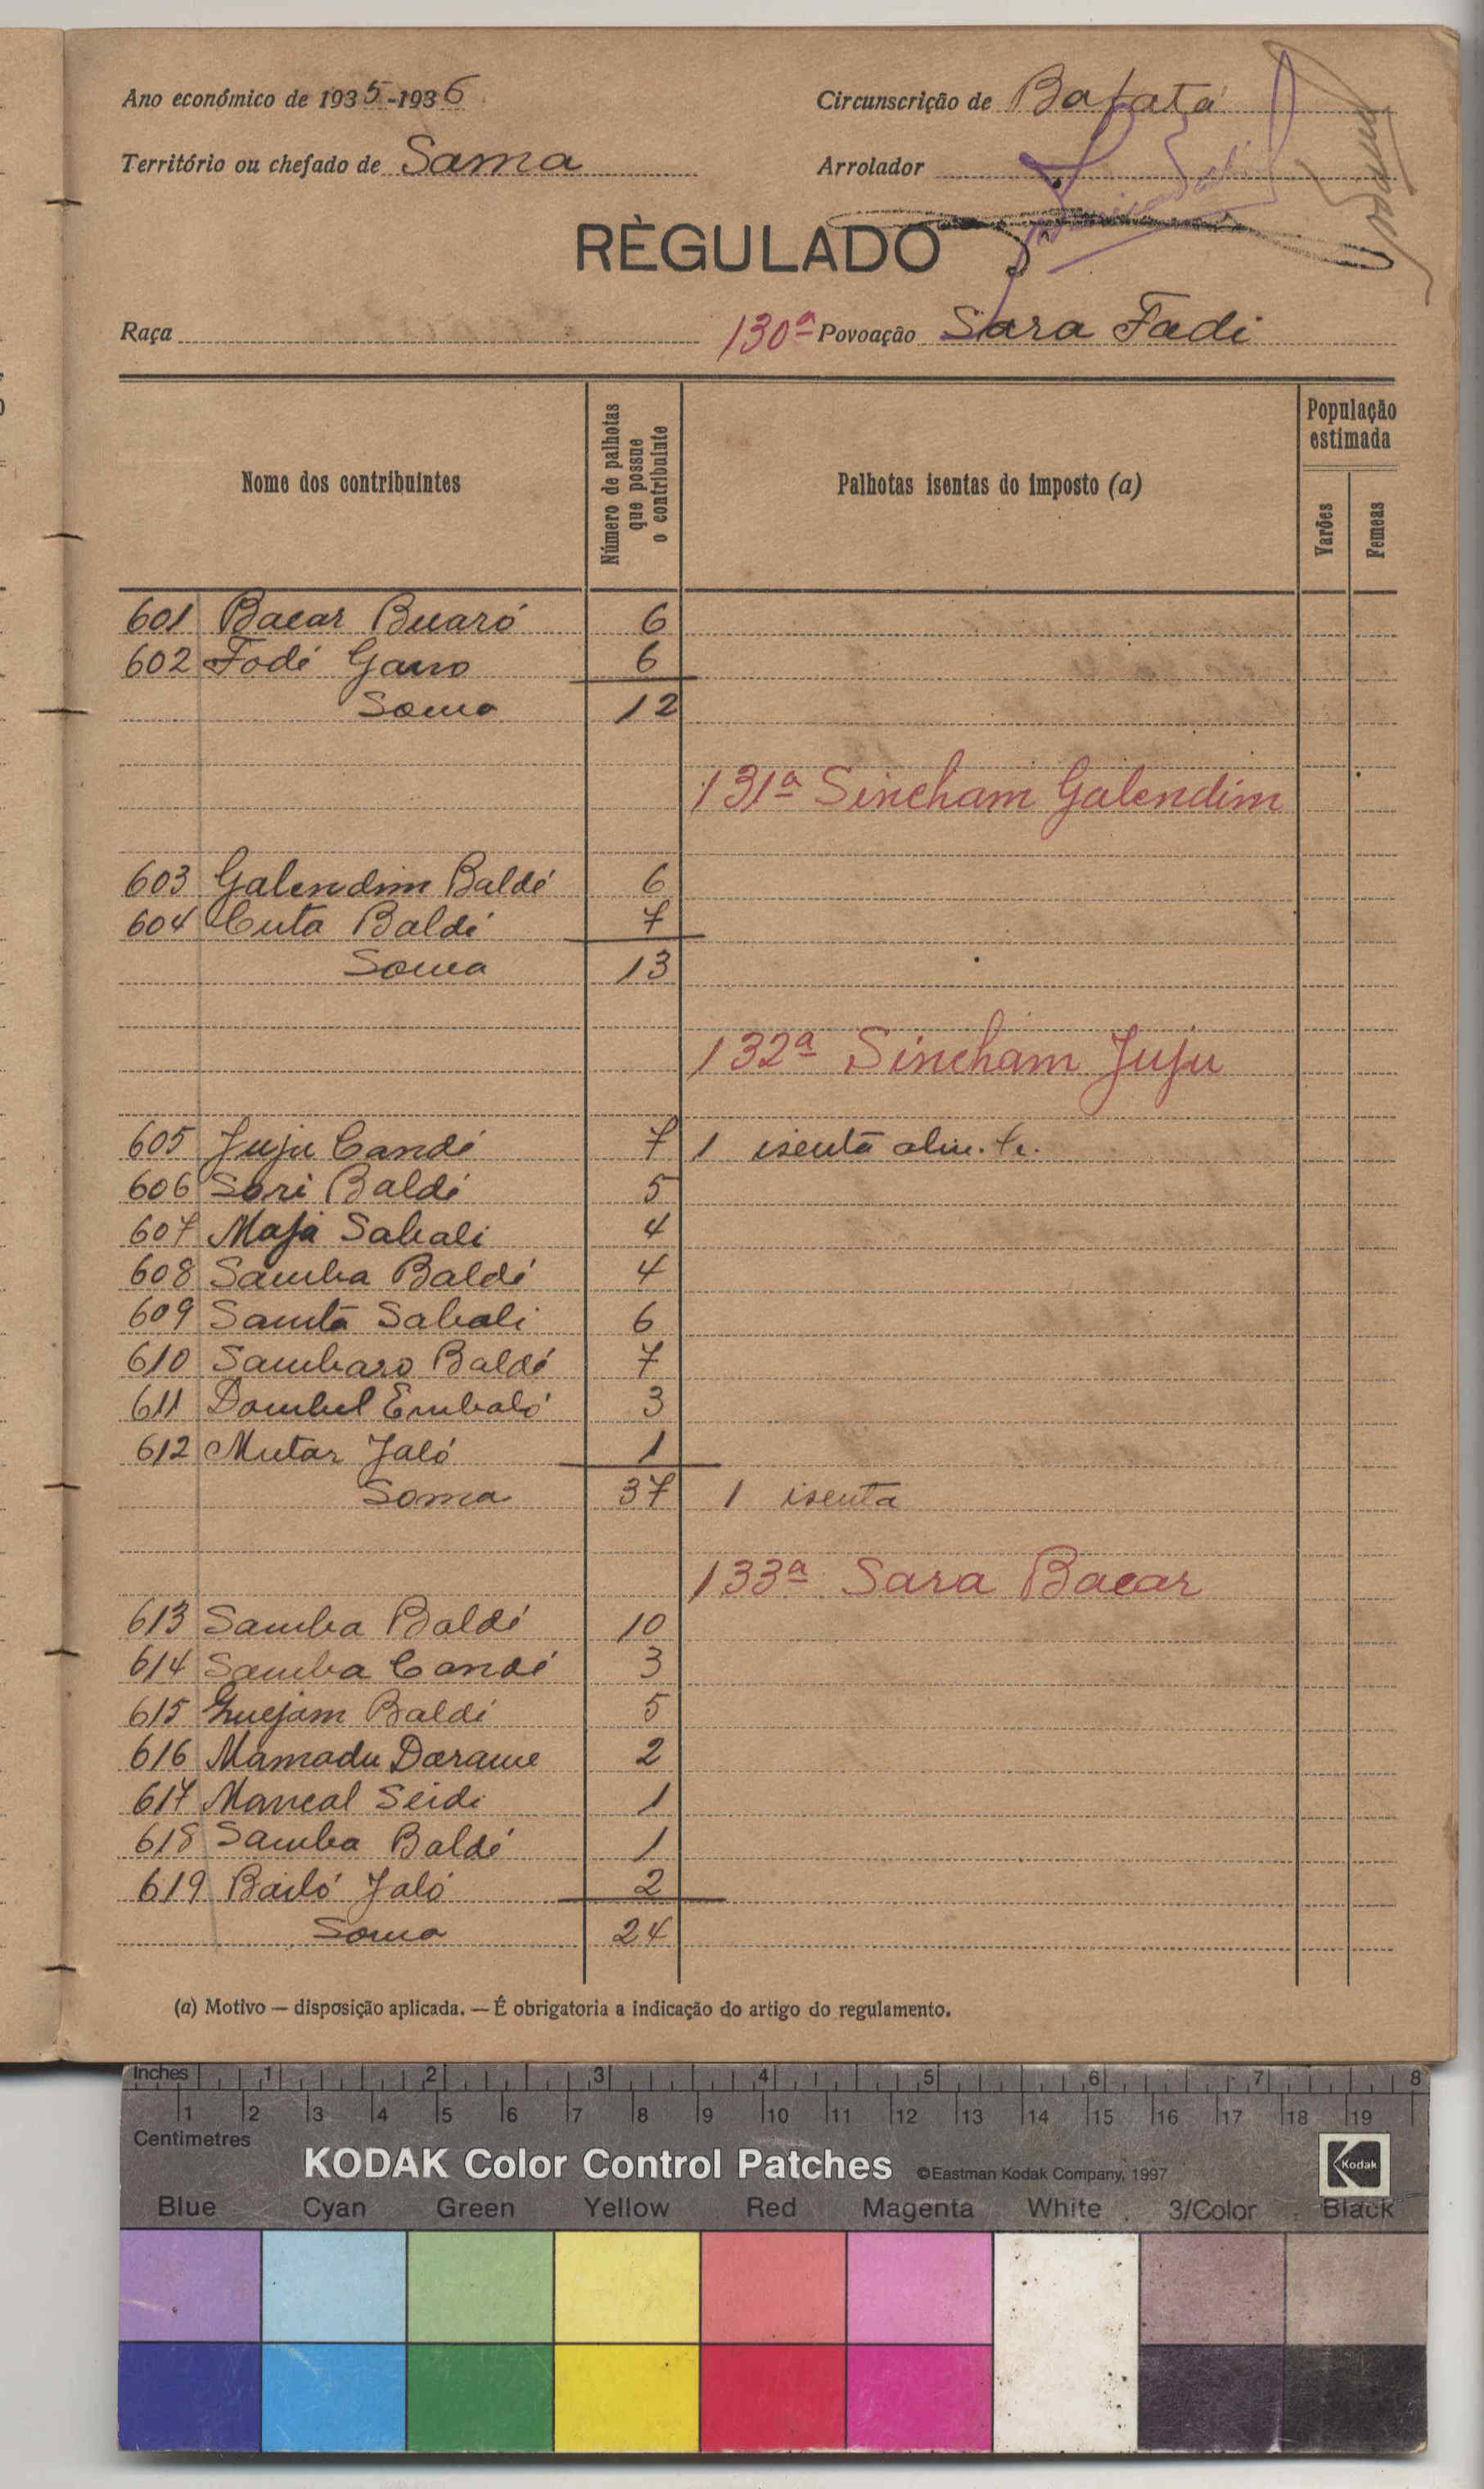 Ano económico de 1935-1936
Circunscrição de Bafatá
Território ou chefado de Sama
Arrolador
RÈGULADO
Raça
130ª Povoação Sara Fadi
Nome dos contribuintes
Número de palhotas que possue o contribuinte
Palhotas isentas do imposto (a)
População estimada
Varões
Femeas
601 Bacar Buaró 6
602 Fodé Gano 6
Soma 12
131ª Sincham Galendim
603 Galendim Baldé 6
604 Cuta Baldé 7
Soma 13
132ª Sincham Juju
605 Juju Candé 7 1 isenta
606 Sori Baldé 5
607 Mafa Sabali 4
608 Samba Baldé 4
609 Samta Sabali 6
610 Sambaro Baldé 7
611 Dombel Embaló 3
612 Mutar Jaló 1
Soma 37 1 isenta
133ª Sara Bacar
613 Samba Baldé 10
614 Samba Candé 3
615 Guejam Baldé 5
616 Mamadu Darame 2
617 Mancal Seidi 1
618 Samba Baldé 1
619 Bailó Jaló 2
Soma 24
(a) Motivo — disposição aplicada. — É obrigatoria a indicação do artigo do regulamento.
Inches 1 2 3 4 5 6 7 8
1 2 3 4 5 6 7 8 9 10 11 12 13 14 15 16 17 18 19
Centimetres
KODAK Color Control Patches ©Eastman Kodak Company, 1997 Kodak
Blue Cyan Green Yellow Red Magenta White 3/Color Black